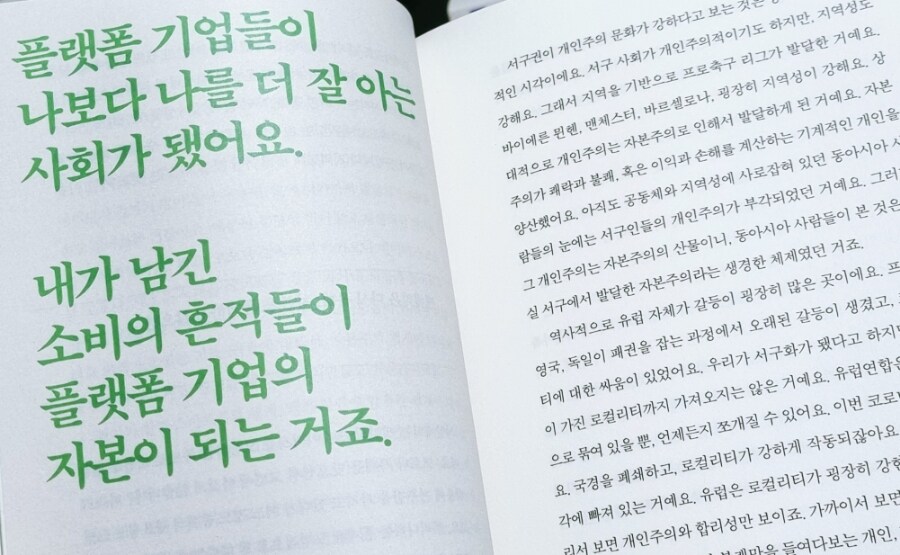 플랫폼 기업들이
나보다 나를 더 잘 아는
사회가 됐어요.
내가 남긴
소비의 흔적들이
플랫폼 기업의
자본이 되는 거죠.
서구권이 개인주의 문화가 강하다고 보는 것은
적인 시각이에요. 서구 사회가 개인주의적이기도 하지만, 지역성도
강해요. 그래서 지역을 기반으로 프로축구 리그가 발달한 거예요.
바이에른 뮌헨, 맨체스터, 바르셀로나, 굉장히 지역성이 강해요. 상
대적으로 개인주의는 자본주의로 인해서 발달하게 된 거예요. 자본
주의가 쾌락과 불쾌, 혹은 이익과 손해를 계산하는 기계적인 개인을
양산했어요. 아직도 공동체와 지역성에 사로잡혀 있던 동아시아 사
람들의 눈에는 서구인들의 개인주의가 부각되었던 거예요. 그러
그 개인주의는 자본주의의 산물이니, 동아시아 사람들이 본 것은
실 서구에서 발달한 자본주의라는 생경한 체제였던 거죠.
역사적으로 유럽 자체가 갈등이 굉장히 많은 곳이에요. 프
영국, 독일이 패권을 잡는 과정에서 오래된 갈등이 생겼고, 로
티에 대한 싸움이 있었어요. 우리가 서구화가 됐다고 하지만
이 가진 로컬리티까지 가져오지는 않은 거예요. 유럽연합은
으로 묶여 있을 뿐, 언제든지 쪼개질 수 있어요. 이번 코로
요. 국경을 폐쇄하고, 로컬리티가 강하게 작동되잖아요
각에 빠져 있는 거예요. 유럽은 로컬리티가 굉장히 강한
리서 보면 개인주의와 합리성만 보이죠. 가까이서 보면
들여다보는 개인,